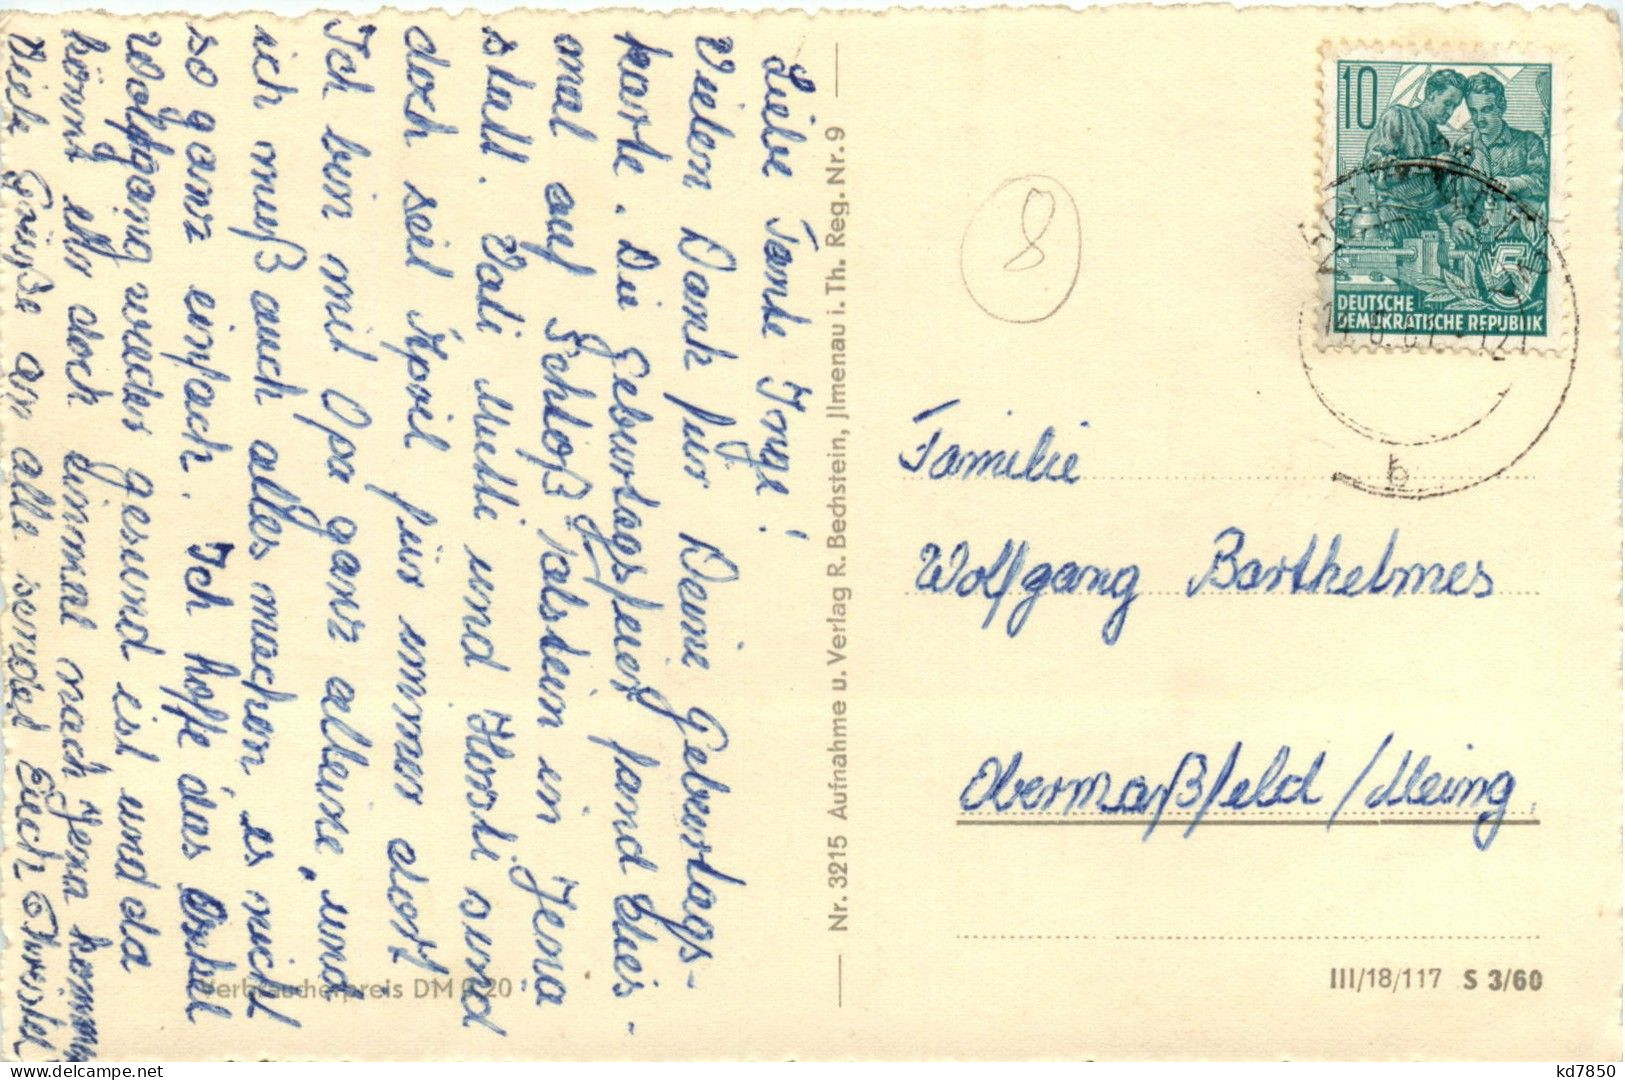 Liebe Tante Inge!
Vielen Dank für Deine Geburtags-
karte. Die Geburtagsfeier fand dies-
mal auf Schloß Talstein in Jena
statt. Vati Mutti und Horsti sind
doch seit April für immer dort
Ich bin mit Opa ganz alleine, und
ich muß auch alles machen, es nicht
so ganz einfach. Ich hoffe das Onkel
Wolfgang wieder gesund ist und da
könnt ihr doch einmal nach Jena kommen
Viele Grüße an alle sendet Euch Thorsten
Verbraucherpreis DM 0,20
Nr. 3215 Aufnahme u. Verlag R. Bechstein, Jlmenau i. Th. Reg. Nr. 9
8
10
DEUTSCHE
DEMOKRATISCHE REPUBLIK
5
b
Familie
Wolfgang Barthelmes
Obermaßfeld / Meing.
III/18/117 S 3/60
kd7850